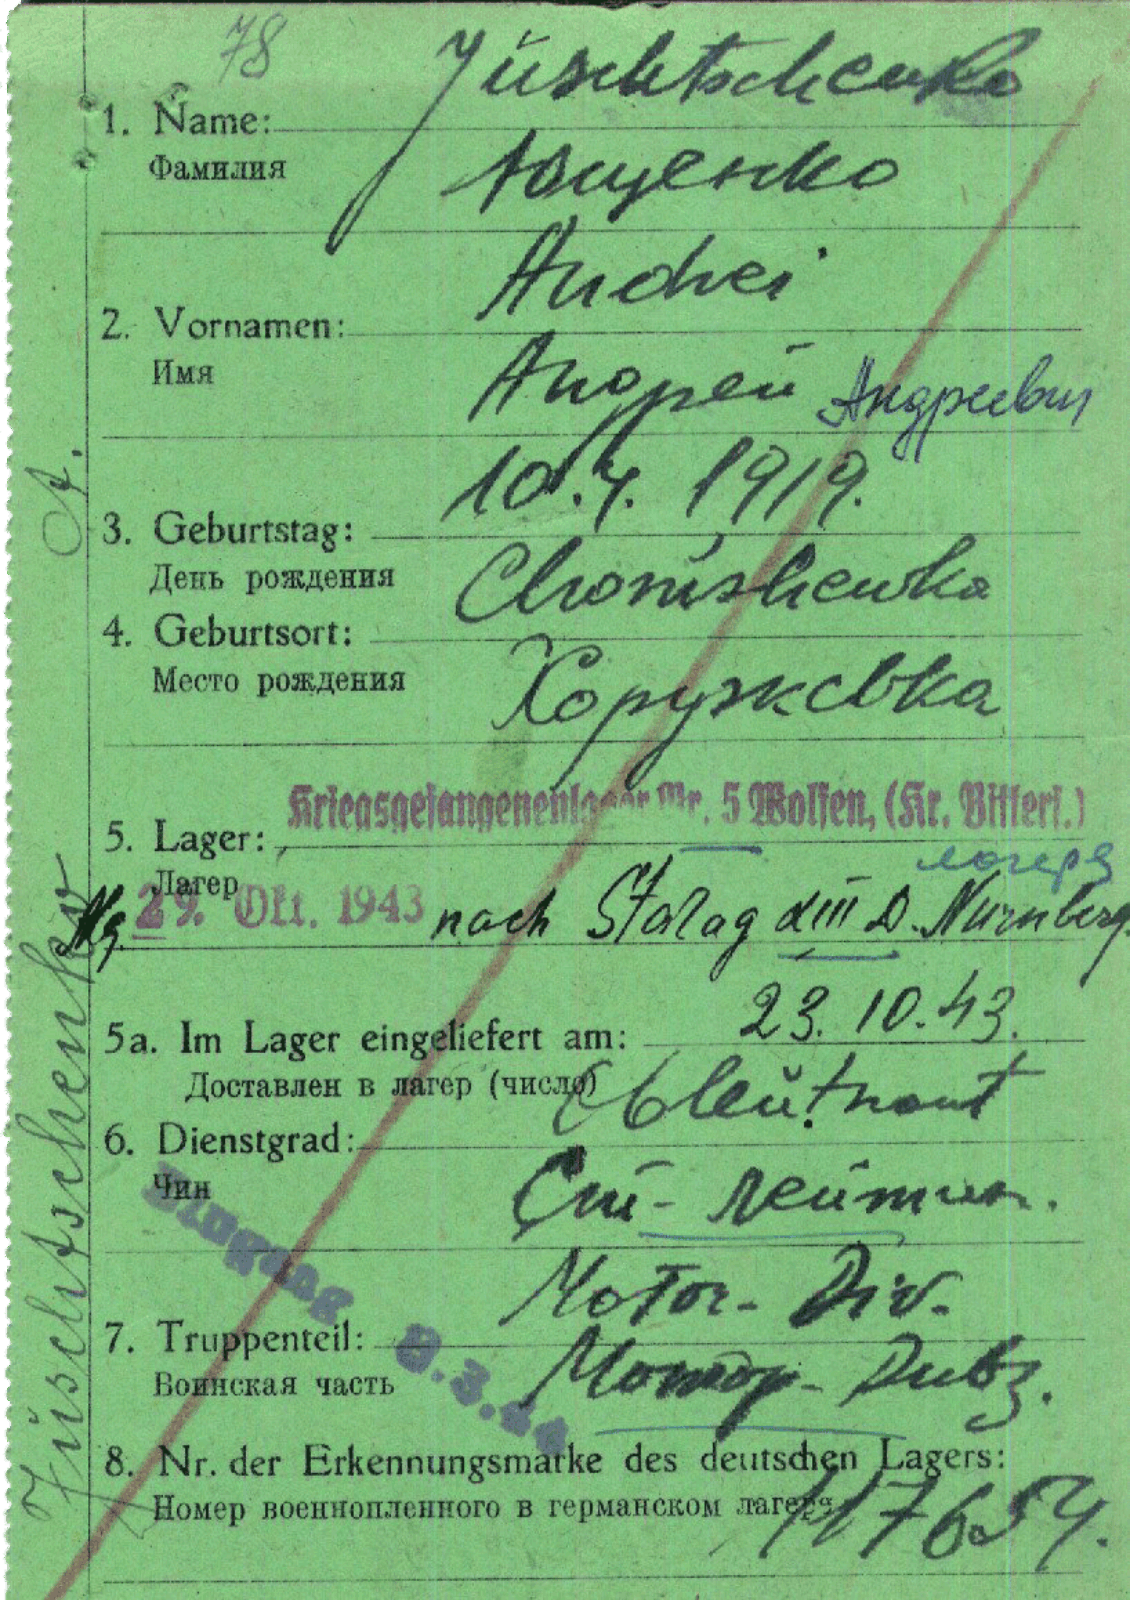 78
Jüschtschenko
1. Name:
Фамилия
Ющенко
Andrei
2. Vornamen:
Имя
Андрей Андреевич
10.4.1919.
3. Geburtstag:
День рождения
4. Geburtsort:
Место рождения
Хоружевка
Kriegsgefangenenlager Nr. 5 Wolfen, (Kr. Bitterf.)
5. Lager:
Лагер
лагеря
29. Okt. 1943 nach Stalag XIII D. Nürnberg
5a. Im Lager eingeliefert am: 23.10.43.
Доставлен в лагер (число)
6. Dienstgrad:
Чин
Eingang 9.3.44
Motor-Div.
7. Truppenteil:
Воинская часть
Мотор-Дивз.
8. Nr. der Erkennungsmarke des deutschen Lagers:
Номер военнопленного в германском лагере
117654.
Jüschtschenko A.